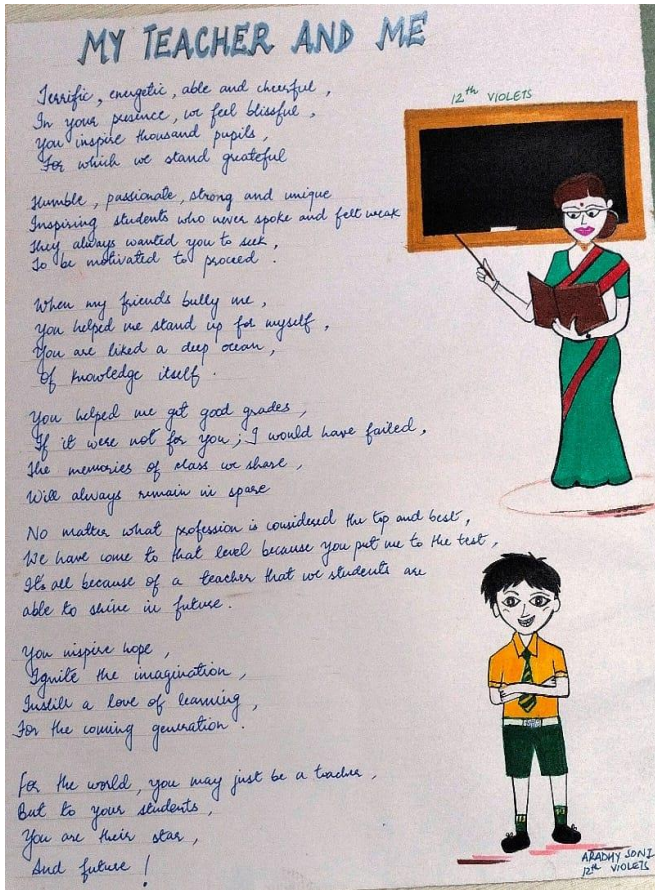 MY TEACHER AND ME
12th VIOLETS
Terrific, energetic, able and cheerful,
In your presence, we feel blissful,
You inspire thousand pupils,
For which we stand greateful
Humble, passionate, strong and unique
Inspiring students who never spoke and felt weak
They always wanted you to seek,
To be motivated to proceed.
When my friends bully me,
You helped me stand up for myself,
You are liked a deep ocean,
Of knowledge itself.
You helped me get good grades,
If it were not for you; I would have failed,
The memories of class we share,
Will always remain in spare
No matter what profession is considered the top and best,
We have come to that level because you put me to the test,
It's all because of a teacher that we students are
able to shine in future.
You inspire hope,
Ignite the imagination,
Instills a love of learning,
For the coming generation.
For the world, you may just be a teacher,
But to your students,
You are their star,
And future!
ARADHY SONI
12th VIOLETS